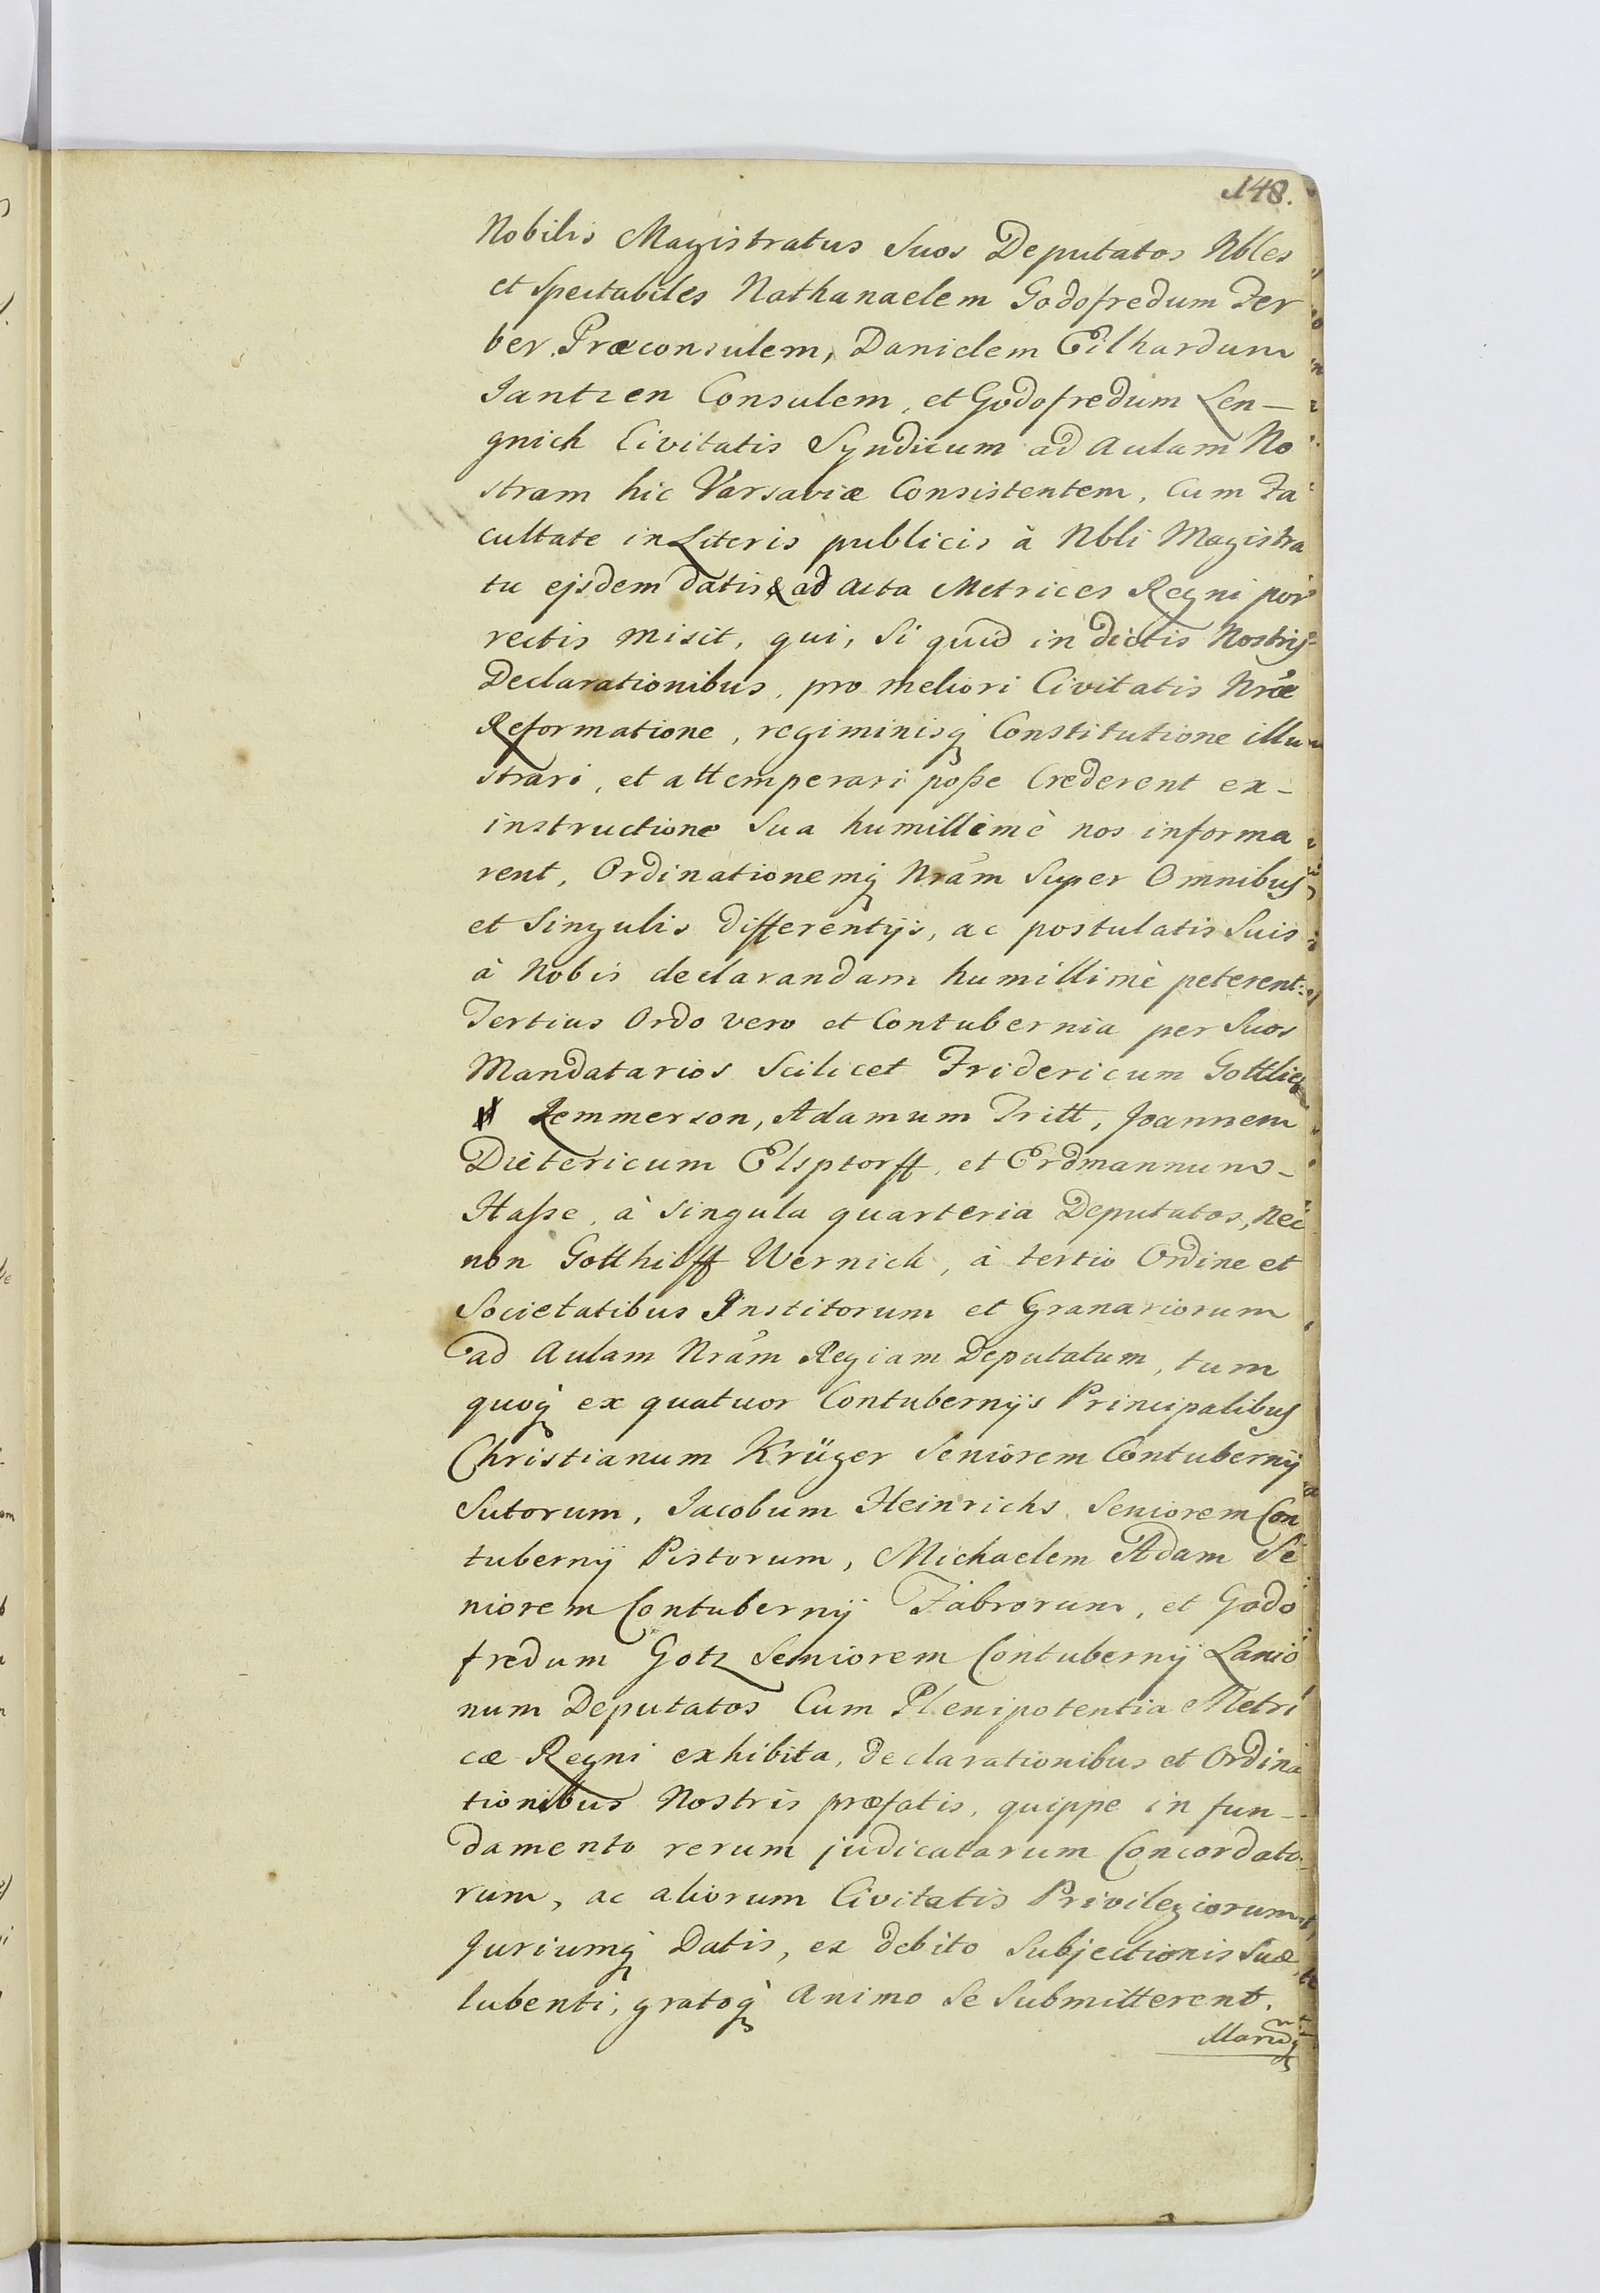 148.
Nobilis Magistratus Suos Deputatos Nbles
et Spectabiles Nathanaelem Godofredum Fer
ber, Præconsulem, Danielem Eilhardum
Jantzen Consulem, et Godofredum Len-
gnich Civitatis Syndicum ad Aulam No
stram hic Varsaviæ Consistentem, Cum Fa
cultate in Literis publicis à Nbli Magistra
tu ejsdem datis & ad Acta Metrices Regni por
rectis misit, qui, Si quid in dictis Nostris
Declarationibus, pro meliori Civitatis Nræ
Reformatione, regiminisq Constitutione illu
strari, et attemperari poße Crederent ex-
instructione Sua humillimè nos informa
rent, Ordinationemq Nram Super Omnibus
et Singulis differentijs, ac postulatis Suis
à Nobis declarandam humillimè peterent:
Tertius Ordo vero et Contubernia per Suos
Mandatarios Scilicet Fridericum Gottlieb
Lemmerson, Adamum Tritt, Joannem
Dietericum Elsptorff, et Erdmannum-
Haße, à Singula quarteria Deputatos, nec
non Gotthilff Wernick, à tertio Ordine et
Societatibus Institorum et Granariorum
ad Aulam Nram Regiam Deputatum, tum
quoq ex quatuor Contubernijs Principalibus
Christianum Krüger Seniorem Contubernij
Sutorum, Jacobum Heinrichs Seniorem Con
tubernij Pistorum, Michaelem Adam Se
niorem Contubernij Fabrorum, et Godo
fredum Gotz Seniorem Contubernij Lanio
num Deputatos Cum Plenipotentia Metri
cæ Regni exhibita, declarationibus et Ordina
tionibus Nostris præfatis, quippe in fun-
damento rerum judicatarum Concordato
rum, ac aliorum Civitatis Privilegiorum
Juriumq Datis, ex debito Subjectionis Suæ
lubenti, gratoq Animo Se Submitterent.